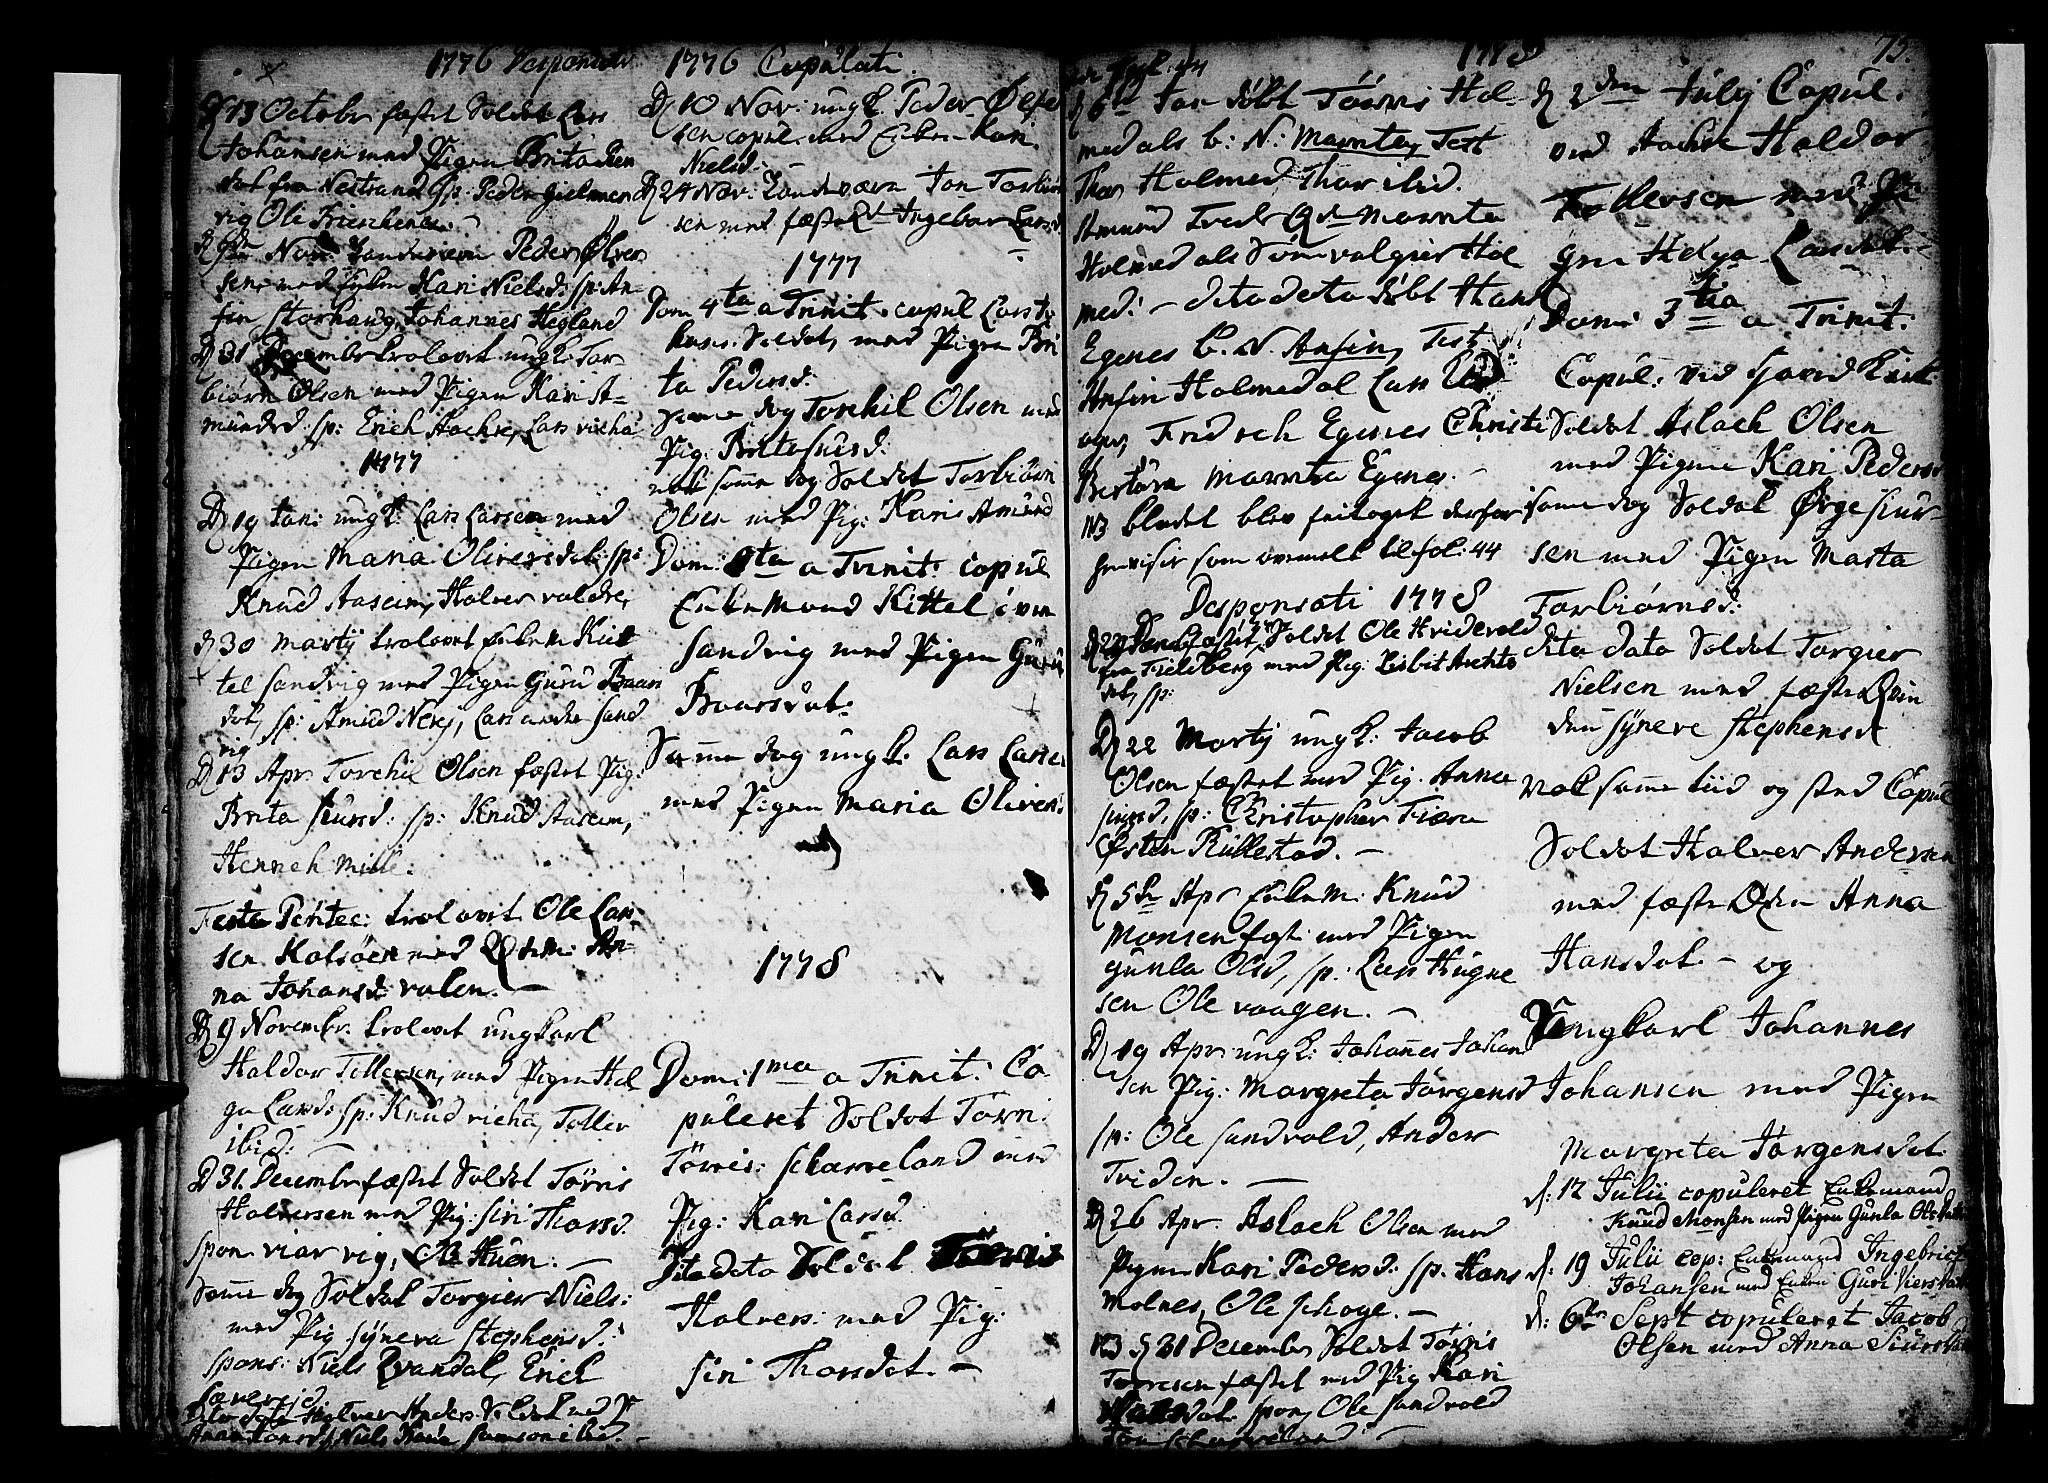 1776 Desponsati
D 13 October fæstet Soldat Lars
Johansen med Pigen Brita
fra Nestrand sp: Peder
vig Ole
Nov: Peder Ølver
sen med Enken Kari Nielsd: sp: An
fin Storhaug, Johannes Hegland
D 31 Decembr trolovet ungk. Tor
biørn Olsen med Pigen Kari A-
mundsd sp: Erich Aachre, Lars vicha
1777
D 19 Jan: ungk: Lars Larsen med
Pigen Maria Oliversdat: sp:
Knud Aaseim, Halver valdre,
D 30 Martij trolovet Enkem Kit
tel Sandvig med Pigen Guru Baars
dat, sp: Amund Nerj, Lars andre Sand
vig
D 13 Apr. Torchil Olsen fæstet Pig:
Brita Siursd: sp: Knud Aaseim,
Henrich Mille.
Festa Pentec: trolovet Ole Lar-
sen Kalsöen med An-
na Johansd valen.
D 9 Novembr. trolovet ungkarl
Haldor Tollersen, med Pigen Hel
ga Larsd: sp: Knud vicha, Toller
ibid:
D 31. Decembr fæstet Soldat Törris
Halversen med Pig: Siri Thorsd.
spon. viar vig, Ole Huen.
Samme dag Soldat Torgier Niels:
med Pig Syneva Stephensd.
spons: Niels Qvandal, Erich
Halver Anders. Soldat med P.
Anna Hansd, Niels Samson ibid.
1776 Copulati
D 10 Nov: ungk. Peder Ølver
sen copul. med Enken Kari
Nielsd:
D 24 Nov. Landeværn Jon Torbiørn
sen med fæste Ingebor Larsd.
1777
Dom 4ta a Trinit. copul Lars Jo
hans. Soldat, med Pigen Bri
ta Pedersd:
Samme dag Torchil Olsen med
Pig: Brita Siursd:
nok samme dag Soldat Torbiørn
Olsen med Pig: Karis Amund
Dom: ta a Trinit: copul
Enkemand Kittel övre
Sandvig med Pigen Guru
Baarsdat:
Samme dag ungk. Lars Larsen
med Pigen Maria Olivers
1778
Domi: 1ma a Trinit: Co-
puleret Soldat Torri
Törris: Scharveland med
Pig: Kari Larsd.
Dito dato Soldat Törris
Halvers: med Pig:
Siri Thorsdat.
1778
75.
D 6te Jan döbt Törris Hol
medals b: N: Marrite, Test
Thor Holmed Thor ibid.
Amund Marrita
Holmedals Hol
med: - dito dato döbt Hans
Egenes b. N. Anfin, Test
Anfin Holmedal Lars
Fridrich Egenes Christi
Marrita Egenes.
NB bladet blev feiltaget derfor
henviser som ovenmelt til fol: 44
Desponsati 1778
fæstet Soldat Ole Hvidevold
fra Fieldberg med Pig: Lisbit
dat, sp:
D 22 Martij ungk: Jacob
Olsen fæstet med Pig. Anna
Siursd, sp: Christopher Fiæra
Østen Rullestad.
D 5te Apr Enkem. Knud
Monsen fæst: med Pigen
Gunla Olsd, sp: Lars Hugne
sen Ole vaagen.
D 19 Apr: ungk: Johanes Johan
sen Pig: Margreta Jörgensd
sp: Ole Sandvold, Ander
Tviden.
D 26 Apr. Aslach Olsen med
Pigen Kari Pedersd: sp. Hans
Molnes, Ole Schoge.
NB D 31 Decembr Soldat Törris
Torresen fæstet med Pig Kari
Larsdat. spon, Ole Sandvold
D 2den Julij Copul.
ved Aachre Haldor
Tollersen med Pi
gen Helga Larsdat.
Domi 3tia a Trinit.
Copul: ved
Soldat Aslach Olsen
med Pigen Kari Pedersd
samme dag Soldat Ørge Siur-
sen med Pigen Marta
Torbiørnsd:
dito dato Soldat Torgier
Nielsen med fæste Qvin
den Syneve Stephensd
nok samme tiid og sted Copul
Soldat Halver Andersen
med fæste Anna
Hansdat. - og
Ungkarl Johannes
Johansen med Pigen
Margreta Jörgensdat.
d: 12 Julii copuleret Enkemand
Knud Monsen med Pigen Gunla Olsdatt
d: 19 Julii cop: Enkemand Ingebrigt
Johansen med Enken Guri Siersdatt
d: 6te Sept copuleret Jacob
Olsen med Anna Siursdatt